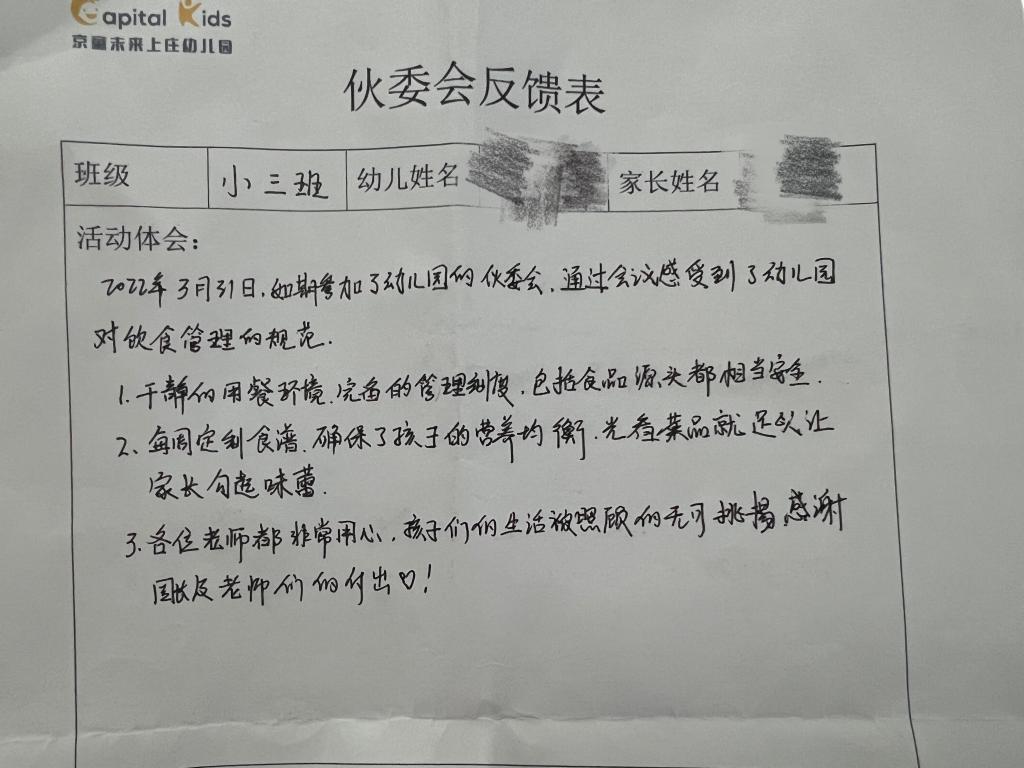 Capital Kids
京童未来上庄幼儿园
伙委会反馈表
班级 小三班 幼儿姓名 家长姓名
活动体会：
2022年3月31日,如期参加了幼儿园的伙委会,通过会议感受到了幼儿园
对饮食管理的规范.
1.干静的用餐环境.完备的管理制度,包括食品源头都相当安全.
2、每周定制食谱.确保了孩子的营养均衡.光看菜品就足以让
家长勾起味蕾.
3.各位老师都非常用心,孩子们的生活被照顾的无可挑揚,感谢
园长及老师们的付出♡!